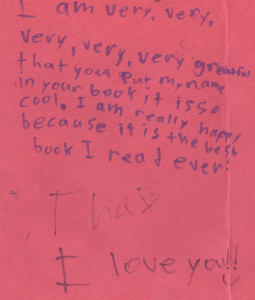 I am very, very,
very, very, very greatful
that you put my name
in your book it is so
cool. I am really happy
because it is the best
book I read ever.
Thax
I love you!!